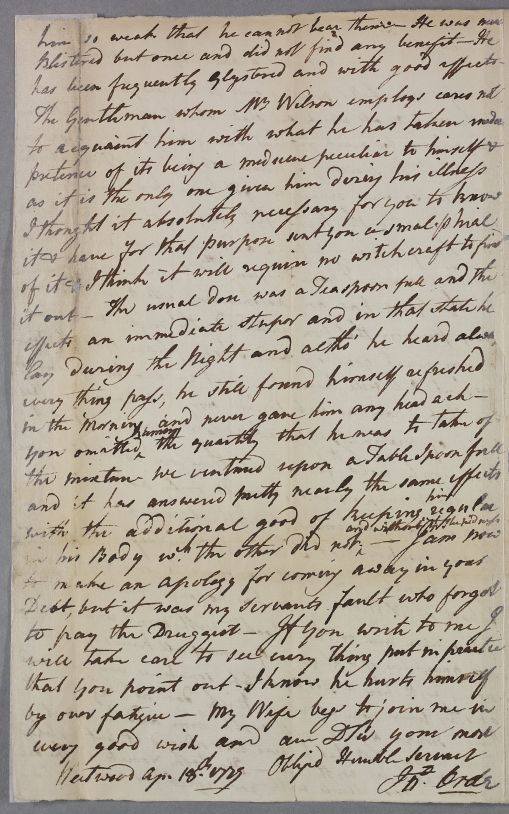 him so weak that he cannot bear them — He was never
blistered but once and did not find any benefit — He
has been frequently glystered and with good effects —
The Gentleman whom Mr Wilson employs cares not
to acquaint him with what he has taken under
pretence of its being a medicine peculiar to himself &
as it is the only one given him during his illness
I thought it absolutely necessary for you to know
it & have for that purpose sent you a small phial
of it & I think it will require no witchcraft to find
it out — The usual dose was a Teaspoon full and the
effects an immediate stupor and in that state he
lay during the Night and altho' he heard
every thing pass, he still found himself refreshed
in the Morning and never gave him any head ach —
you omitted naming the quantity that he was to take of
the mixture we ventured upon a Table Spoon full
and it has answered pretty nearly the same effects
with the additional good of keeping him regular
in his Body wch. the other did not, and without — I am now
to make an apology for coming away in your
Debt, but it was my servants fault who forgot
to pay the Druggist — If you write to me I
will take care to see every thing put in practice
that you point out — I know he hurts himself
by over fatigue — My Wife begs to join me in
every good wish and am Dr Sir your most
Westwood Ap. 18th. 1779 Oblig'd Humble Servant
Jno. Orde